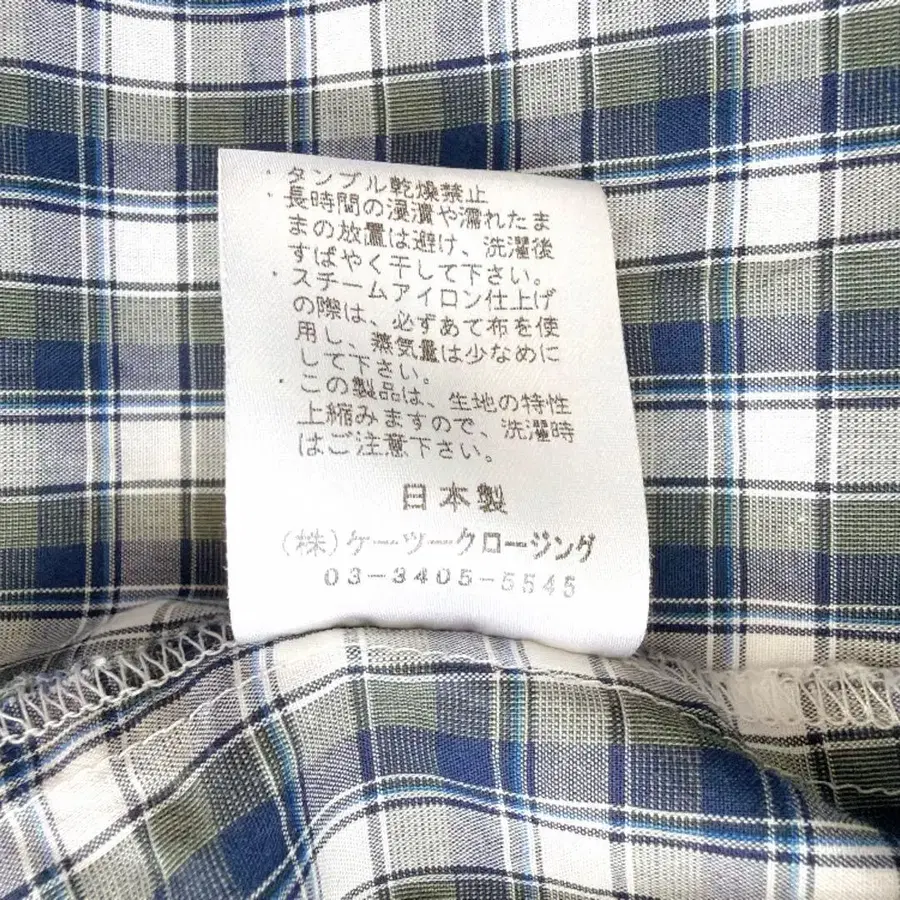 ・タンブル乾燥禁止
・長時間の浸漬や濡れたま
まの放置は避け、洗濯後
すばやく干して下さい。
・スチームアイロン仕上げ
の際は、必ずあて布を使
用し、蒸気量は少なめに
して下さい。
・この製品は、生地の特性
上縮みますので、洗濯時
はご注意下さい。
日本製
(株)ケーツークロージング
03-3405-5545